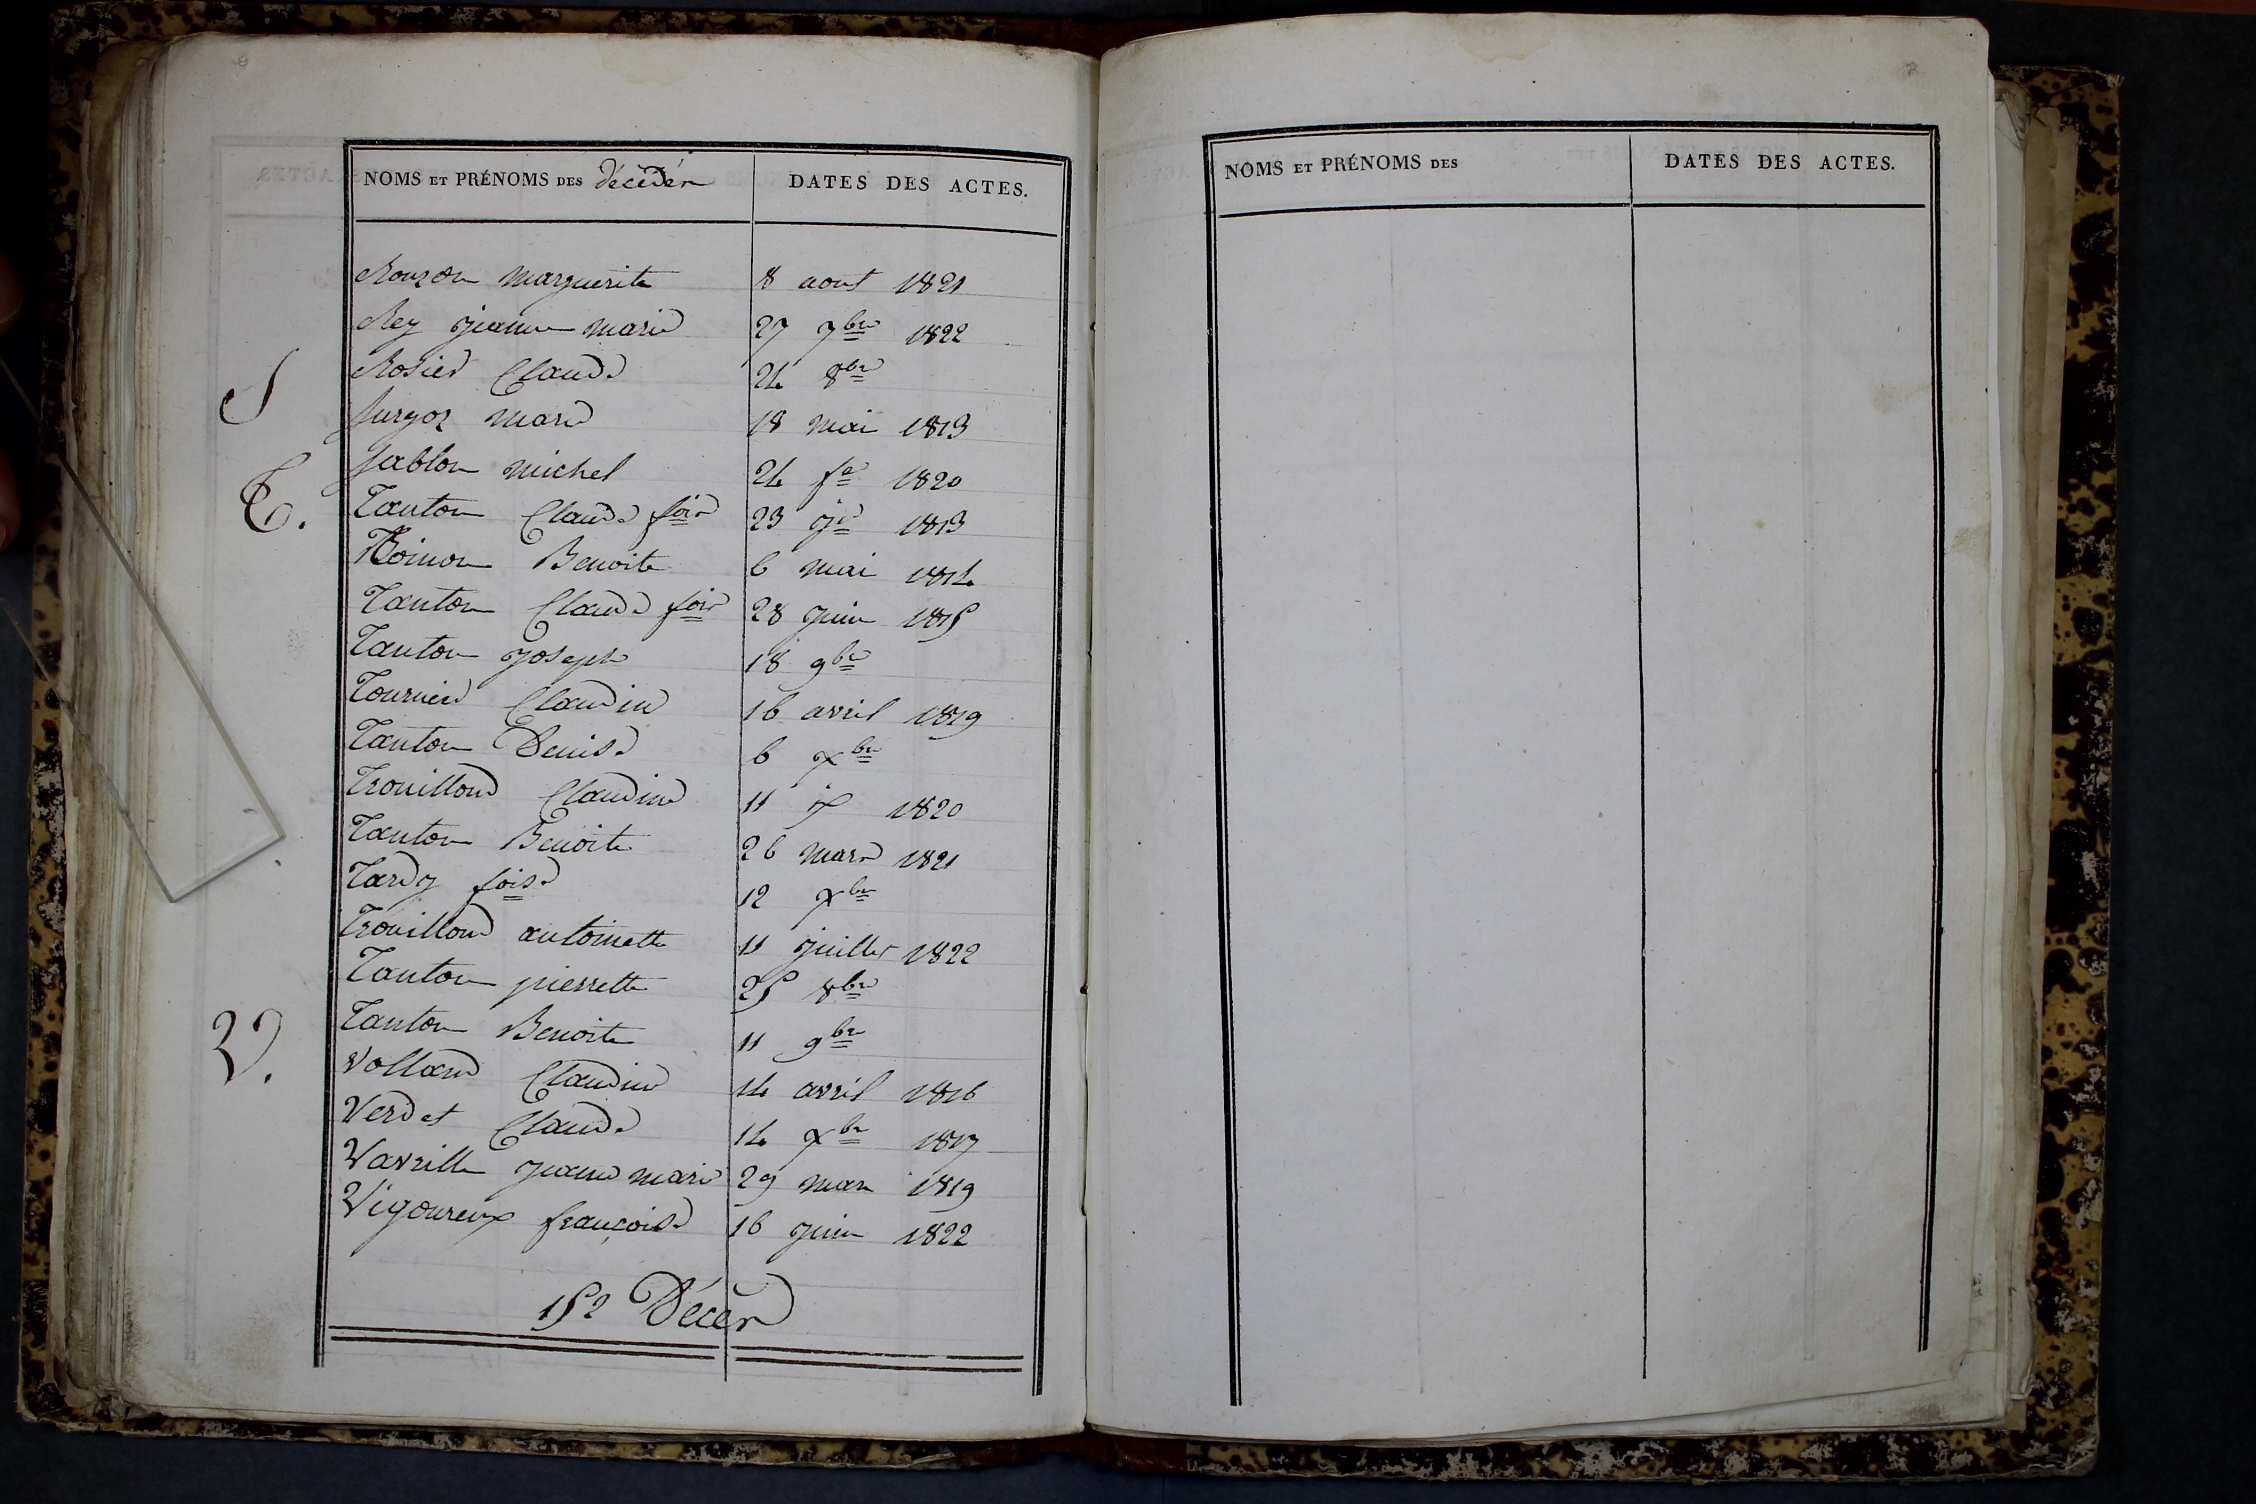 NOMS ET PRÉNOMS DES décédés DATES DES ACTES.
Rouzon marguerite 8 aout 1821
Rey jeanne marie 27 7bre 1822
Rosier Claude 24 8bre
S
Surgoz marie 18 mai 1813
Sablon michel 24 fer 1820
T.
Tanton Claude fois 23 jer 1813
Thoinon Benoite 6 mai 1814
Tanton Claude fois 28 juin 1815
Tanton joseph 18 9bre
Tournier Claudine 16 avril 1819
Tanton Denise 6 xbre
Trouilloud Claudine 11 1820
Tanton Benoite 26 mars 1821
Tardy foise 12 xbre
Trouilloud antoinette 11 juillet 1822
Tanton pierrette 25 8bre
Tanton Benoite 11 9bre
V.
Volland Claudine 14 avril 1816
Verdet Claude 14 xbre 1817
Vavrille jeanne marie 29 mars 1819
Vigoureux françoise 16 juin 1822
152 Décès
NOMS ET PRÉNOMS DES DATES DES ACTES.